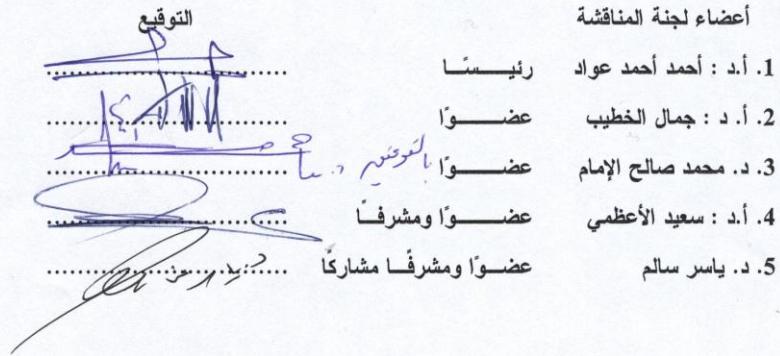 أعضاء لجنة المناقشة التوقيع
1. أ.د : أحمد أحمد عواد رئيـــسـًـا ........................
2. أ. د : جمال الخطيب عضـــــوًا ........................
3. د. محمد صالح الإمام عضـــــوًا بالتفويض ........................
4. أ.د : سعيد الأعظمي عضـــــوًا ومشرفـًـا ........................
5. د. ياسر سالم عضــوًا ومشرفـًـا مشاركًا ........................